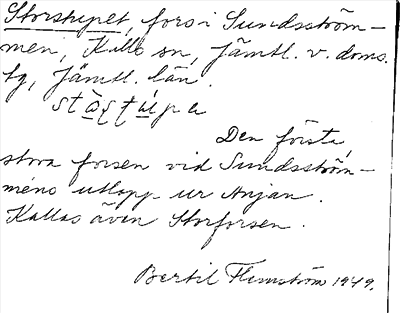 Storstupet, fors i Sundsström-
men, Kalls sn, Jämtl. v. doms.
tg, Jämtl. län.
Den första,
stora forsen vid Sundsström-
mens utlopp ur Anjan.
Kallas även Storforsen.
Bertil Flemström 1949.